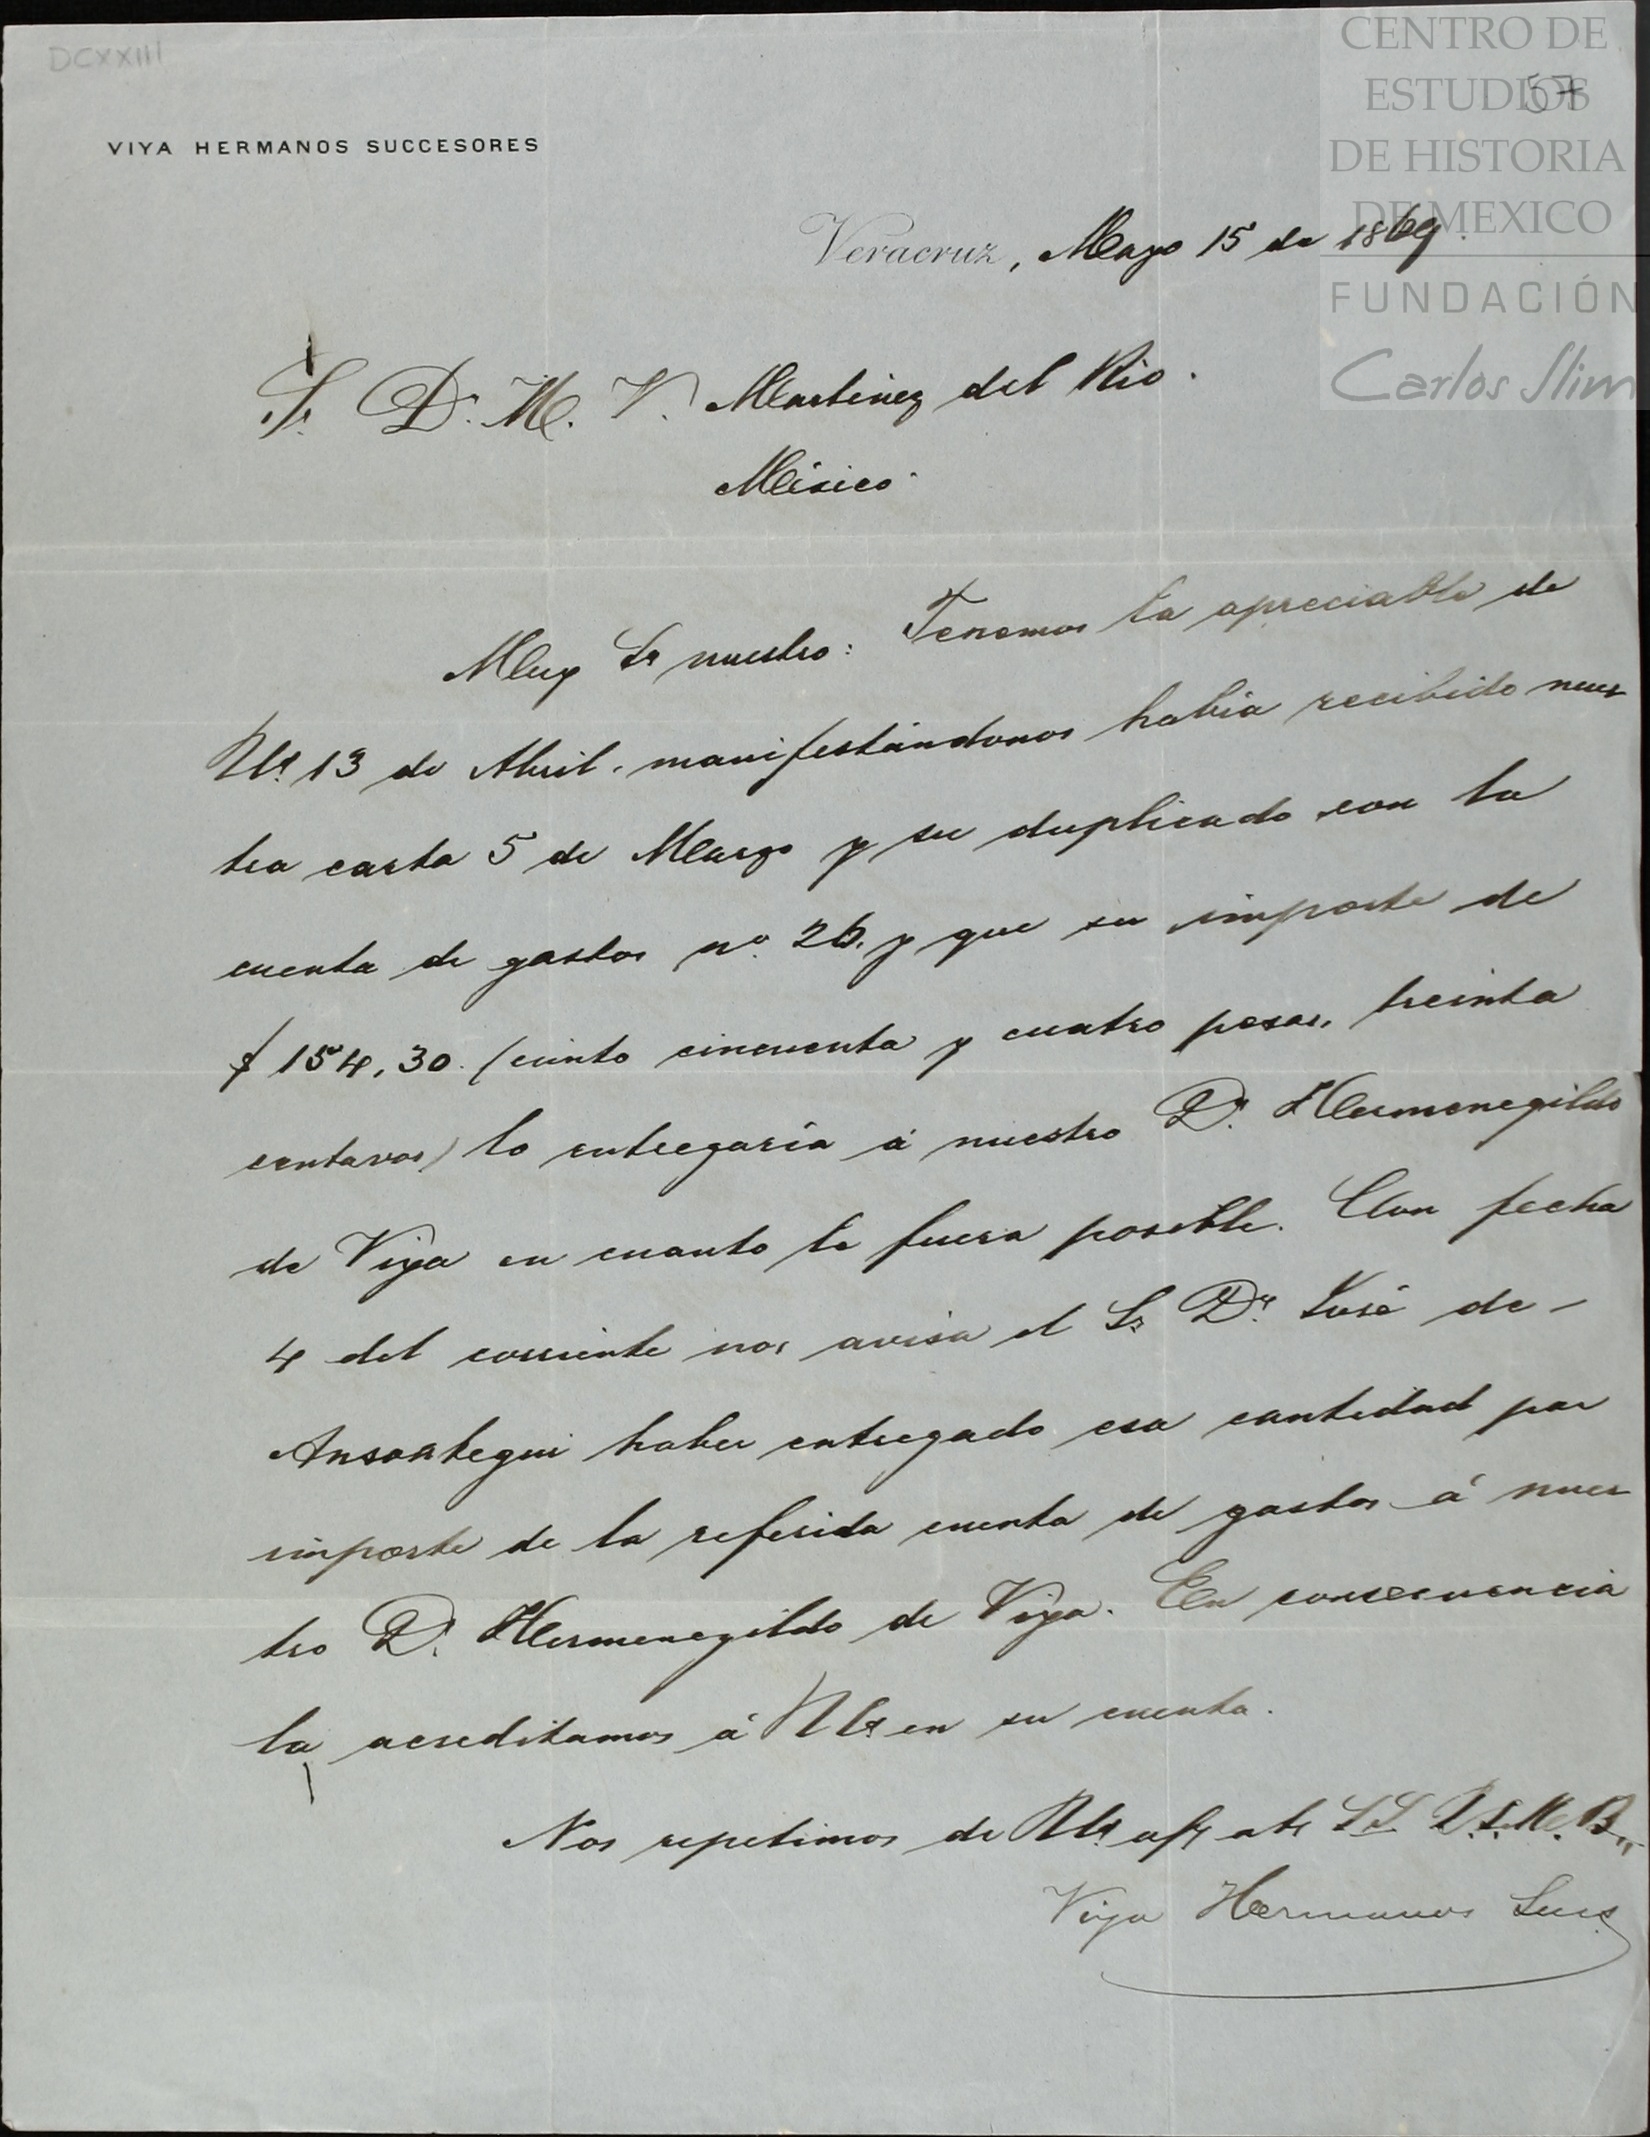 DCXXIII
CENTRO DE
ESTUDIOS
57
DE HISTORIA
DE MEXICO
FUNDACIÓN
Carlos Slim
VIYA HERMANOS SUCCESORES
Veracruz, Mayo 15 de 1869.
Sr. Dn. M. V. Martinez del Rio.
México.
Muy Sr nuestro: Tenemos la apreciable de
Ud. 13 de Abril, manifestándonos habia recibido nues
tra carta 5 de Marzo y su duplicado con la
cuenta de gastos no. 26, y que su importe de
$ 154,30. (ciento cincuenta y cuatro pesos, treinta
centavos) lo entregaría á nuestro Dn. Hermenegildo
de Viya en cuanto le fuera posible. Con fecha
4 del corriente nos avisa el Sr. Dn. José de -
Ansoategui haber entregado esa cantidad por
importe de la referida cuenta de gastos á nues
tro D. Hermenegildo de Viya. En consecuencia
la acreditamos á Ud. en su cuenta.
Nos repetimos de Ud. afs ats SS. Q.S.M.B.,,
Viya Hermanos Sucs